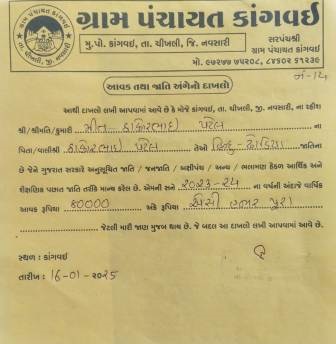 ગ્રામ પંચાયત કાંગવઈ
મુ.પો. કાંગવઈ, તા. ચીખલી, જિ. નવસારી
સરપંચશ્રી
ગ્રામ પંચાયત કાંગવઈ
મો. ૯૭૨૭૭ ૫૫૨૦૮, ૮૪૬૦૨ ૬૧૨૩૯
આવક તથા જાતિ અંગેનો દાખલો
આથી દાખલો લખી આપવામાં આવે છે કે મોજે કાંગવઈ, તા. ચીખલી, જી. નવસારી, ના રહીશ
શ્રી/શ્રીમતિ/કુમારી મીત ઠાકોરભાઈ પટેલ ના
પિતા/વાલીશ્રી ઠાકોરભાઈ પટેલ તેઓ હિન્દુ-ધોડિયા જાતિના
છે જેને ગુજરાત સરકારે અનુસુચિત જાતિ / જનજાતિ / બક્ષીપંચ / અન્ય / ભલામણ હેઠળ આર્થિક અને
શૈક્ષણિક પછાત જાતિ તરીકે માન્ય કરેલ છે. એમની સને 2023-24 ના વર્ષની અંદાજે વાર્ષિક
આવક રૂપિયા 80000 અંકે રૂપિયા એંસી હજાર પુરા
જેટલી મારી જાણ મુજબ થાય છે. જે બદલ આ દાખલો લખી આપવામાં આવે છે.
સ્થળ : કાંગવઈ
તારીખ : 16-01-૨૦૨5